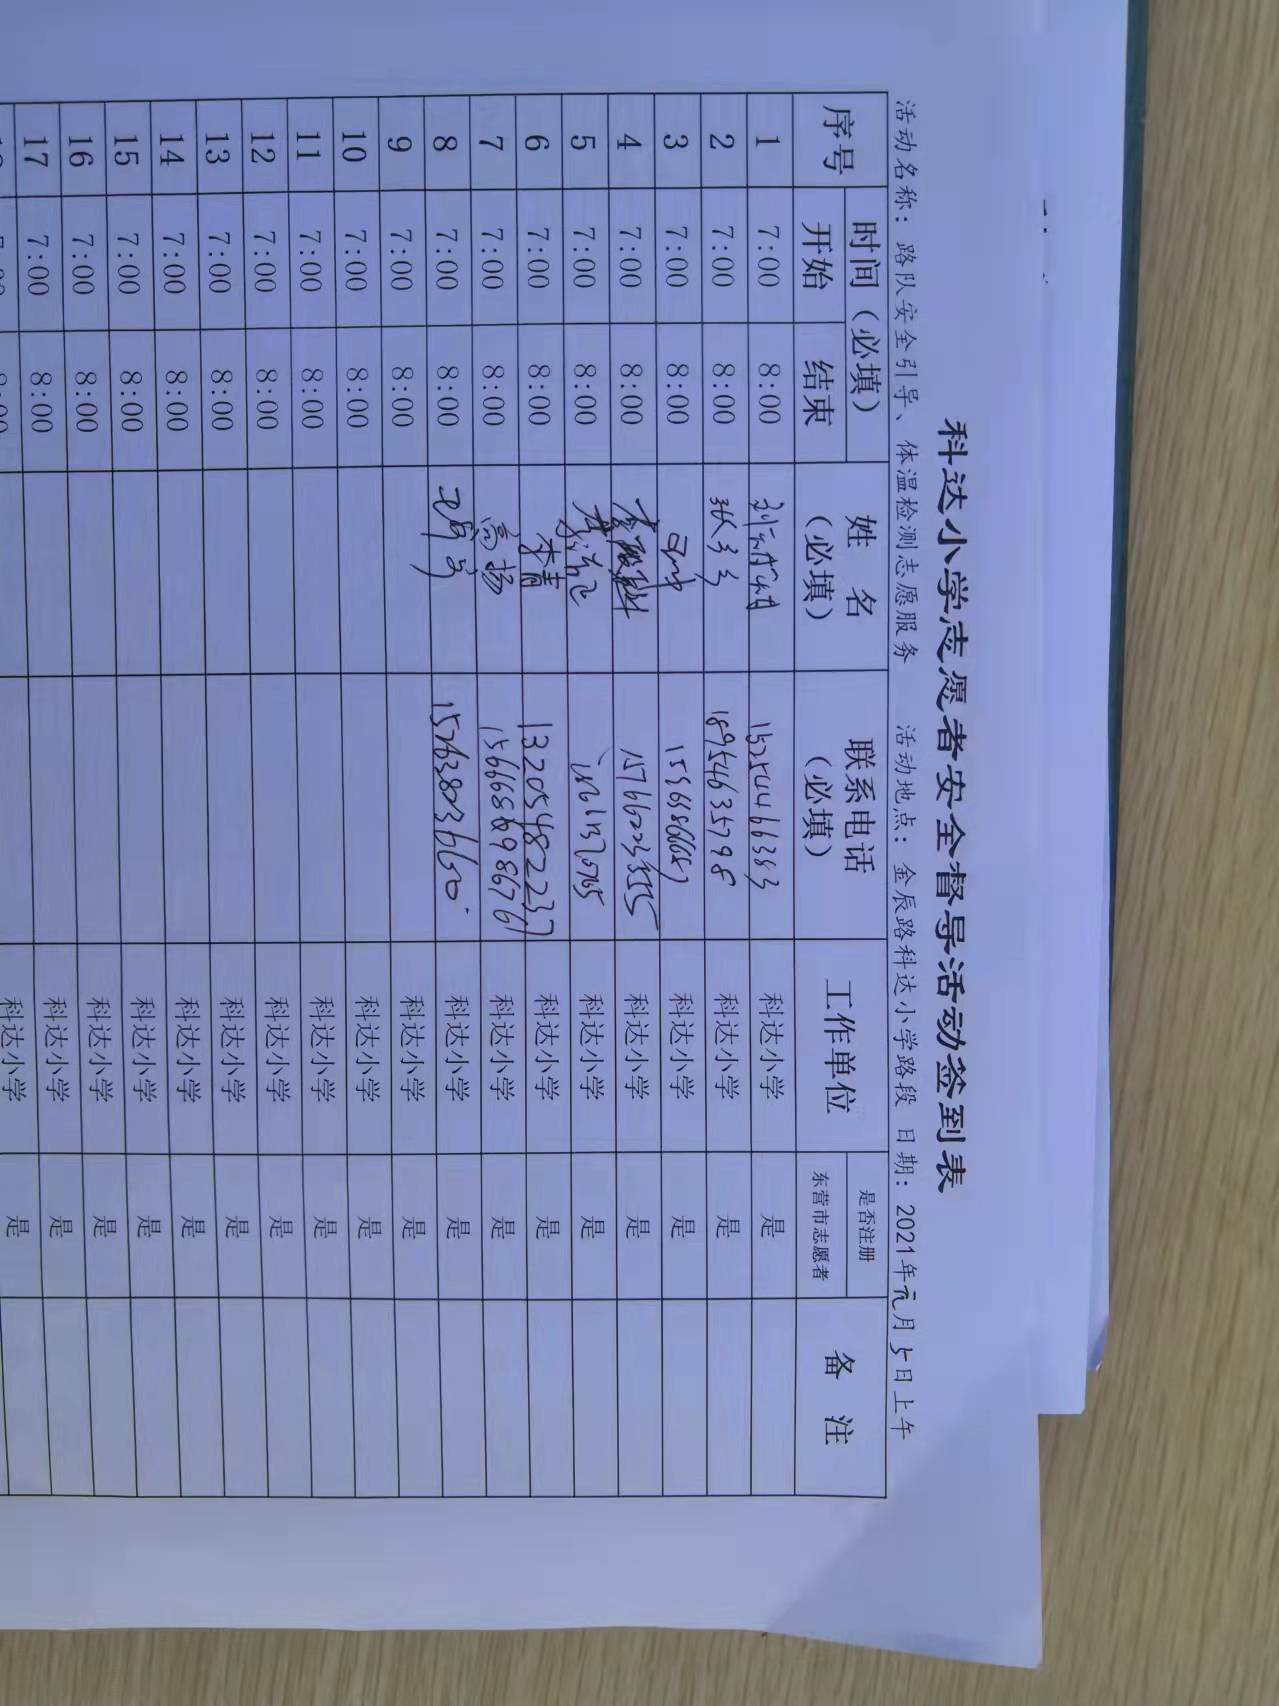 科达小学志愿者安全督导活动签到表
活动名称：路队安全引导、体温检测志愿服务 活动地点：金辰路科达小学路段 日期：2021年元月5日上午
序号 时间（必填） 姓 名（必填） 联系电话（必填） 工作单位 是否注册东营市志愿者 备 注
开始 结束
1 7:00 8:00 15254466383 科达小学 是
2 7:00 8:00 张多多 18954635798 科达小学 是
3 7:00 8:00 科达小学 是
4 7:00 8:00 科达小学 是
5 7:00 8:00 科达小学 是
6 7:00 8:00 李青 13205482237 科达小学 是
7 7:00 8:00 高扬 科达小学 是
8 7:00 8:00 15263803660 科达小学 是
9 7:00 8:00 科达小学 是
10 7:00 8:00 科达小学 是
11 7:00 8:00 科达小学 是
12 7:00 8:00 科达小学 是
13 7:00 8:00 科达小学 是
14 7:00 8:00 科达小学 是
15 7:00 8:00 科达小学 是
16 7:00 8:00 科达小学 是
17 7:00 8:00 科达小学 是
科达小学 是